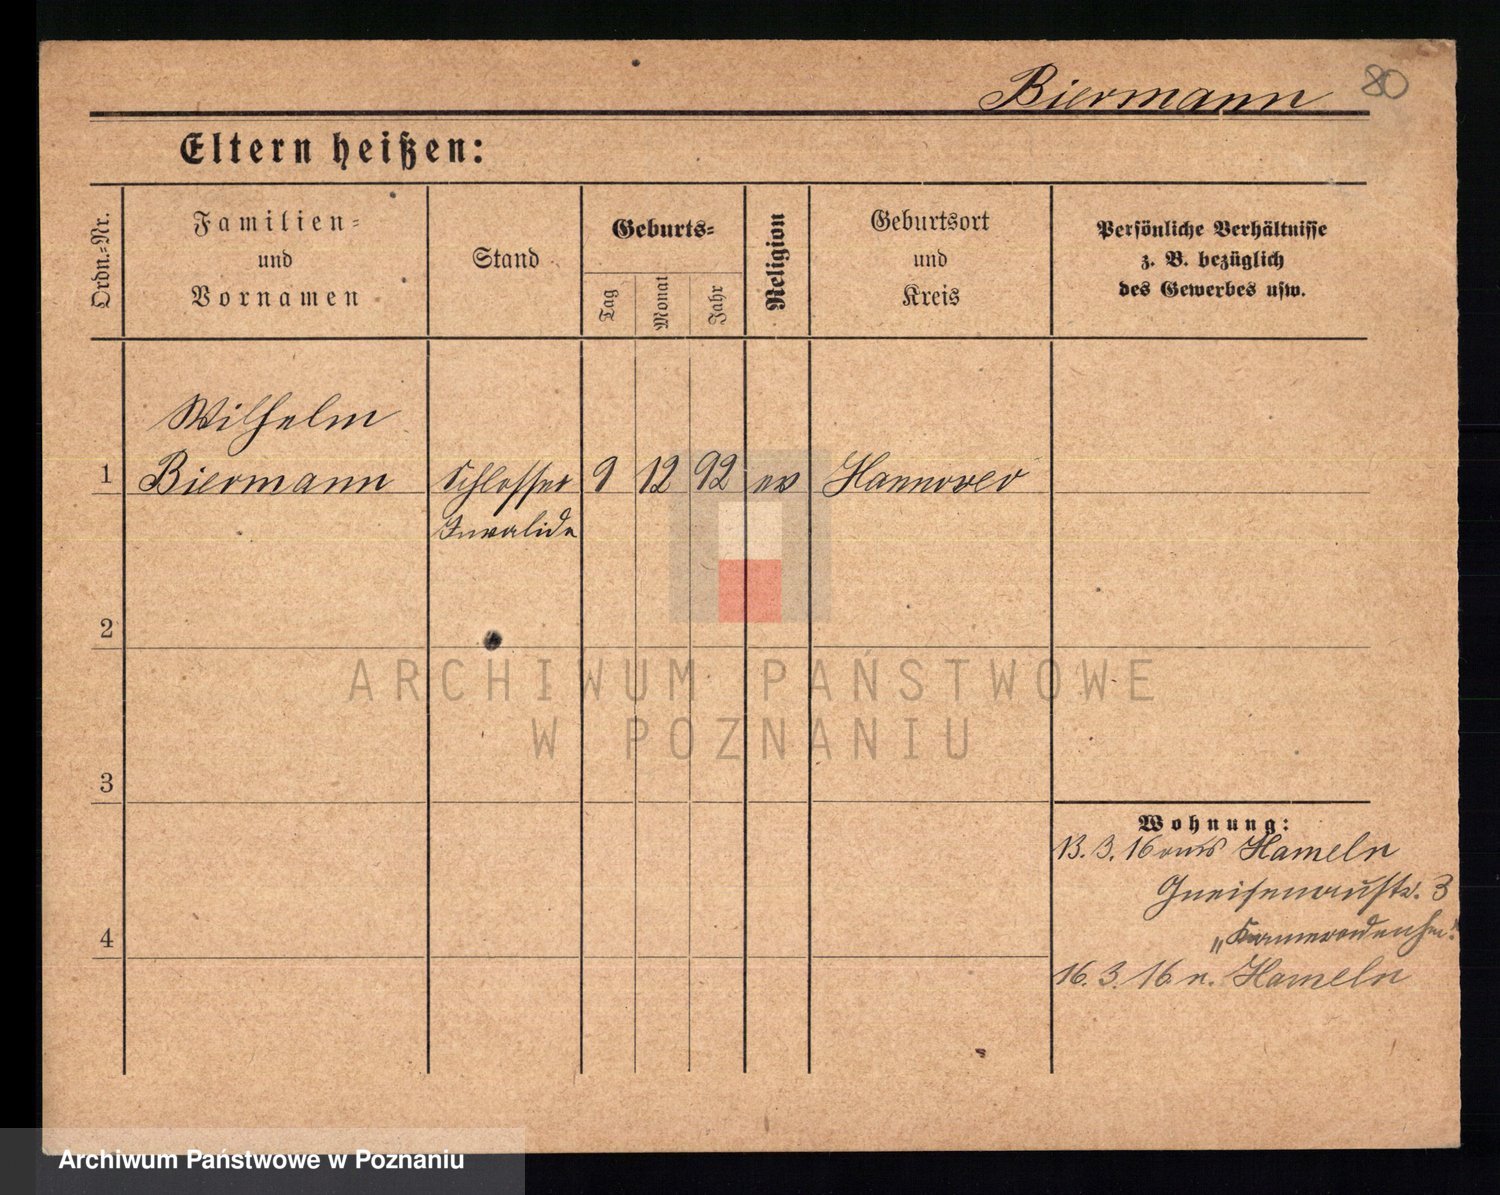 Biermann 80
Eltern heißen:
Ordn.-Nr.
Familien-
und
Vornamen
Stand
Geburts-
Tag
Monat
Jahr
Religion
Geburtsort
und
Kreis
Persönliche Verhältnisse
z. B. bezüglich
des Gewerbes usw.
Wilhelm
1 Biermann Schlosser 9 12 92 ev Hannover
Invalide
2
ARCHIWUM PAŃSTWOWE
W POZNANIU
3
Wohnung:
13. 3. 16 aus Hameln
Gneisenaustr. 3
4
16. 3. 16 n. Hameln
Archiwum Państwowe w Poznaniu